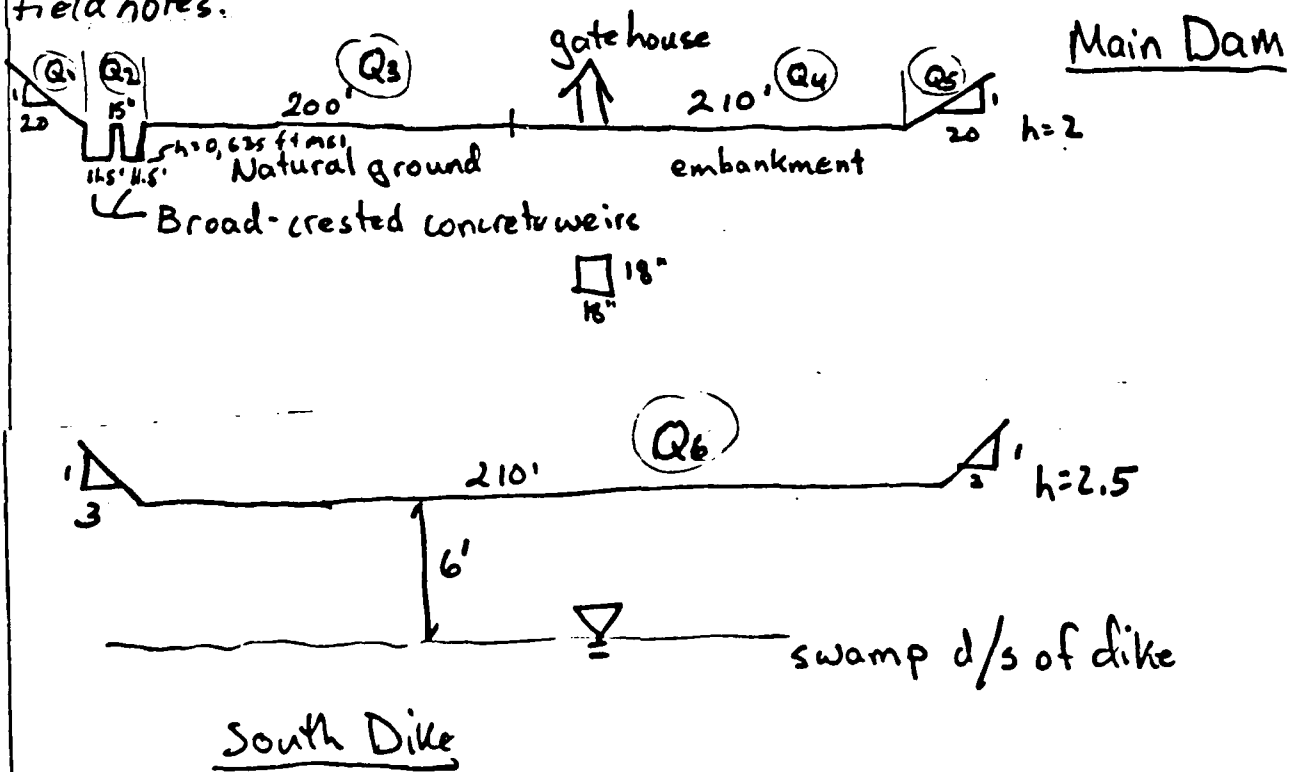 field notes.
gate house
Main Dam
Q1 Q2 Q3 Q4 Q5
1
20
15"
200'
210'
1
20
h=2
h=0, 635 ft msl
11.5' 11.5'
Natural ground
embankment
Broad-crested concrete weirs
18"
18"
Q6
1
3
210'
1
3
h=2.5
6'
swamp d/s of dike
South Dike